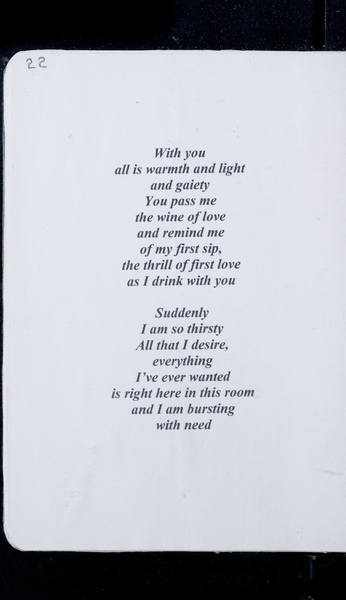 22
With you
all is warmth and light
and gaiety
You pass me
the wine of love
and remind me
of my first sip,
the thrill of first love
as I drink with you
Suddenly
I am so thirsty
All that I desire,
everything
I've ever wanted
is right here in this room
and I am bursting
with need